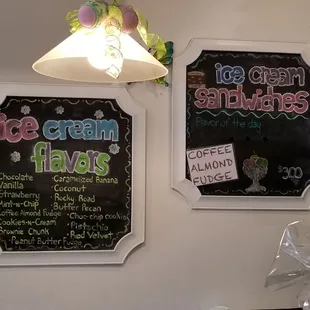 ice cream
flavors
Chocolate
Vanilla
Strawberry
Mint-n-Chip
Coffee Almond Fudge
Cookies-n-Cream
Brownie Chunk
Peanut Butter Fudge
Caramelized Banana
Coconut
Rocky Road
Butter Pecan
Choc-chip cookie
Pistachio
Red Velvet
ice cream
sandwiches
Flavor of the day
COFFEE
ALMOND
FUDGE
$3.00